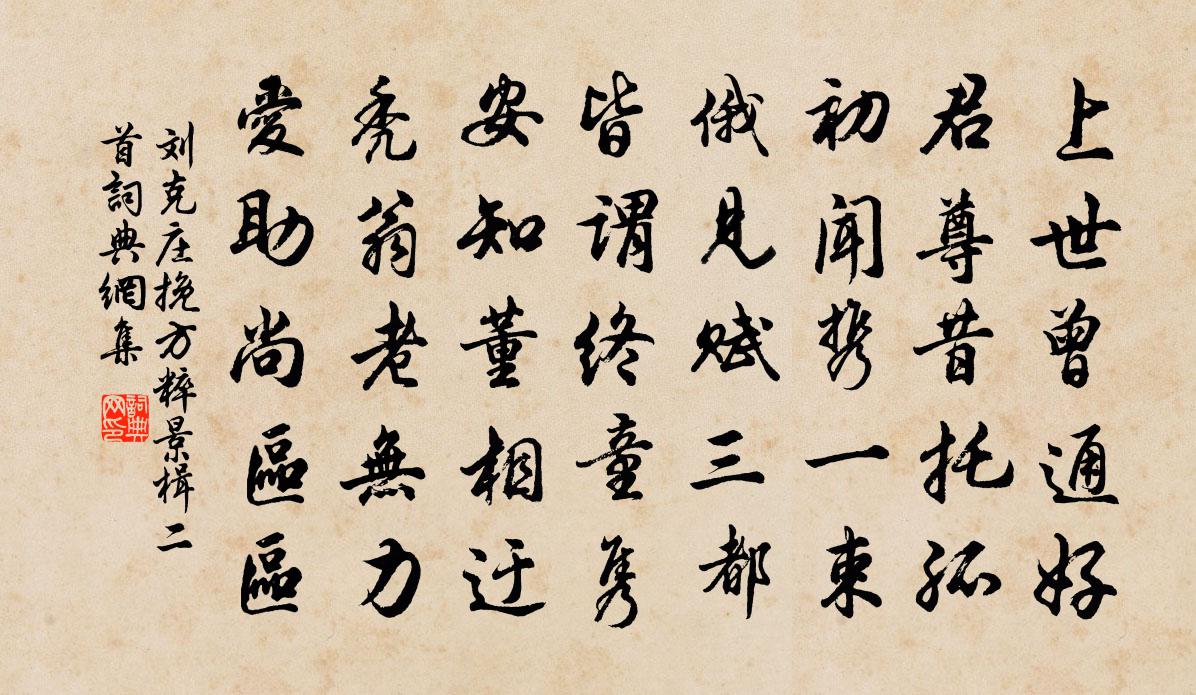 上世曾通好
君尊昔托孤
初闻携一束
俄見赋三都
皆谓终童隽
安知董相迂
秃翁老無力
愛助尚區區
刘克庄挽方粹景楫二
首詞典網集
詞典
网印